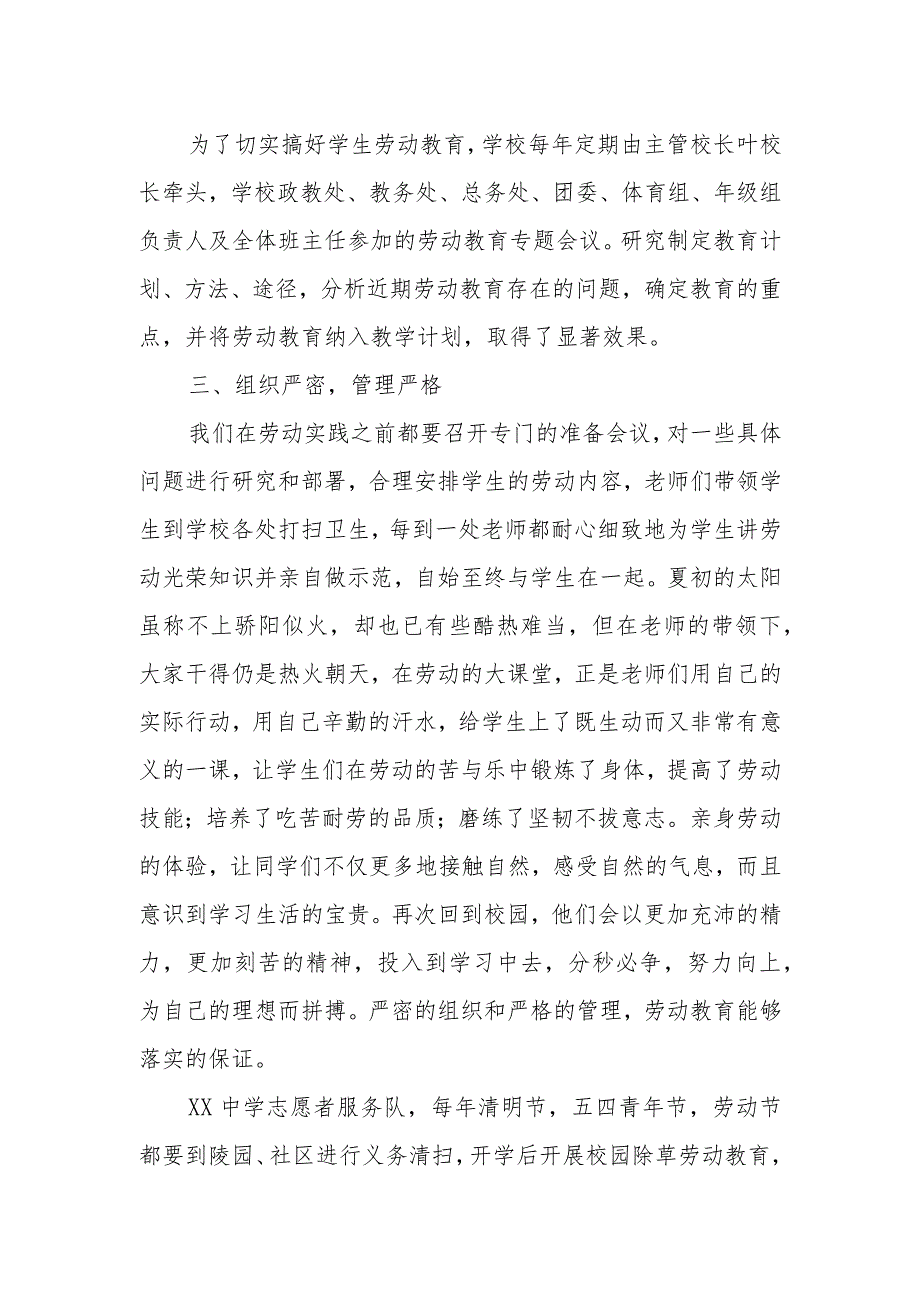 为了切实搞好学生劳动教育，学校每年定期由主管校长叶校
长牵头，学校政教处、教务处、总务处、团委、体育组、年级组
负责人及全体班主任参加的劳动教育专题会议。研究制定教育计
划、方法、途径，分析近期劳动教育存在的问题，确定教育的重
点，并将劳动教育纳入教学计划，取得了显著效果。
三、组织严密，管理严格
我们在劳动实践之前都要召开专门的准备会议，对一些具体
问题进行研究和部署，合理安排学生的劳动内容，老师们带领学
生到学校各处打扫卫生，每到一处老师都耐心细致地为学生讲劳
动光荣知识并亲自做示范，自始至终与学生在一起。夏初的太阳
虽称不上骄阳似火，却也已有些酷热难当，但在老师的带领下，
大家干得仍是热火朝天，在劳动的大课堂，正是老师们用自己的
实际行动，用自己辛勤的汗水，给学生上了既生动而又非常有意
义的一课，让学生们在劳动的苦与乐中锻炼了身体，提高了劳动
技能；培养了吃苦耐劳的品质；磨练了坚韧不拔意志。亲身劳动
的体验，让同学们不仅更多地接触自然，感受自然的气息，而且
意识到学习生活的宝贵。再次回到校园，他们会以更加充沛的精
力，更加刻苦的精神，投入到学习中去，分秒必争，努力向上，
为自己的理想而拼搏。严密的组织和严格的管理，劳动教育能够
落实的保证。
XX 中学志愿者服务队，每年清明节，五四青年节，劳动节
都要到陵园、社区进行义务清扫，开学后开展校园除草劳动教育，